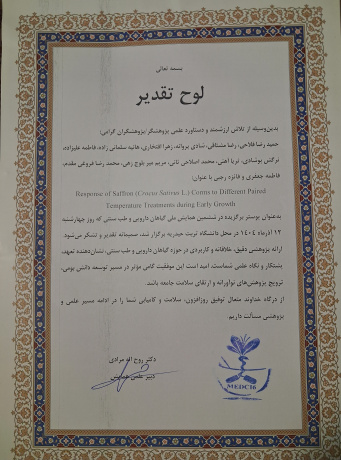 بسمه تعالی
لوح تقدیر
بدین‌وسیله از تلاش ارزشمند و دستاورد علمی پژوهشگر/پژوهشگران گرامی؛
حمید رضا فلاحی، رضا مشتاقی، شادی پروانه، زهرا افتخاری، هانیه سلمانی زاده، فاطمه علیزاده،
نرگس یوشیادی، ثریا آهنی، محمد اصلاحی نائی، مریم میر بلوچ زهی، محمد رضا فروغی مقدم،
فاطمه جعفری و فائزه رجبی با عنوان:
Response of Saffron (Crocus Sativus L.) Corms to Different Paired
Temperature Treatments during Early Growth
به‌عنوان پوستر برگزیده در ششمین همایش ملی گیاهان دارویی و طب سنتی که روز چهارشنبه
۱۲ آذرماه ۱۴۰۴ در محل دانشگاه تربت حیدریه برگزار شد، صمیمانه تقدیر و تشکر می‌شود.
ارائه پژوهشی دقیق، خلاقانه و کاربردی در حوزه گیاهان دارویی و طب سنتی، نشان‌دهنده تعهد،
پشتکار و نگاه علمی شماست. امید است این موفقیت گامی مؤثر در مسیر توسعه دانش بومی،
ترویج پژوهش‌های نوآورانه و ارتقای سلامت جامعه باشد.
از درگاه خداوند متعال توفیق روزافزون، سلامت و کامیابی شما را در ادامه مسیر علمی و
پژوهشی مسألت داریم.
دکتر روح اله مرادی
دبیر علمی همایش
MEDC16